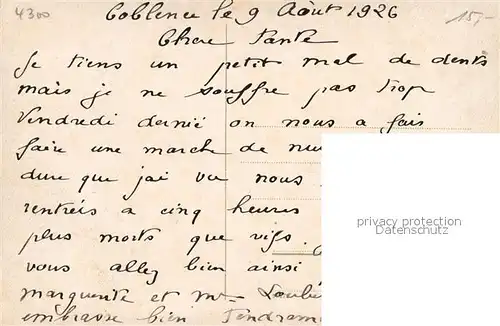 4300
Coblence le 9 Août 1926
15,-
Chere Tante
Je tiens un petit mal de dents
mais je ne souffre pas trop
Vendredi dernié on nous a fais
faire une marche de nui
dure que jai vu nous
rentreis a cinq heures
plus morts que vifs.
vous allez bien ainsi
marguerite et mr Laube
embrasse bien Tendrem
privacy protection
Datenschutz